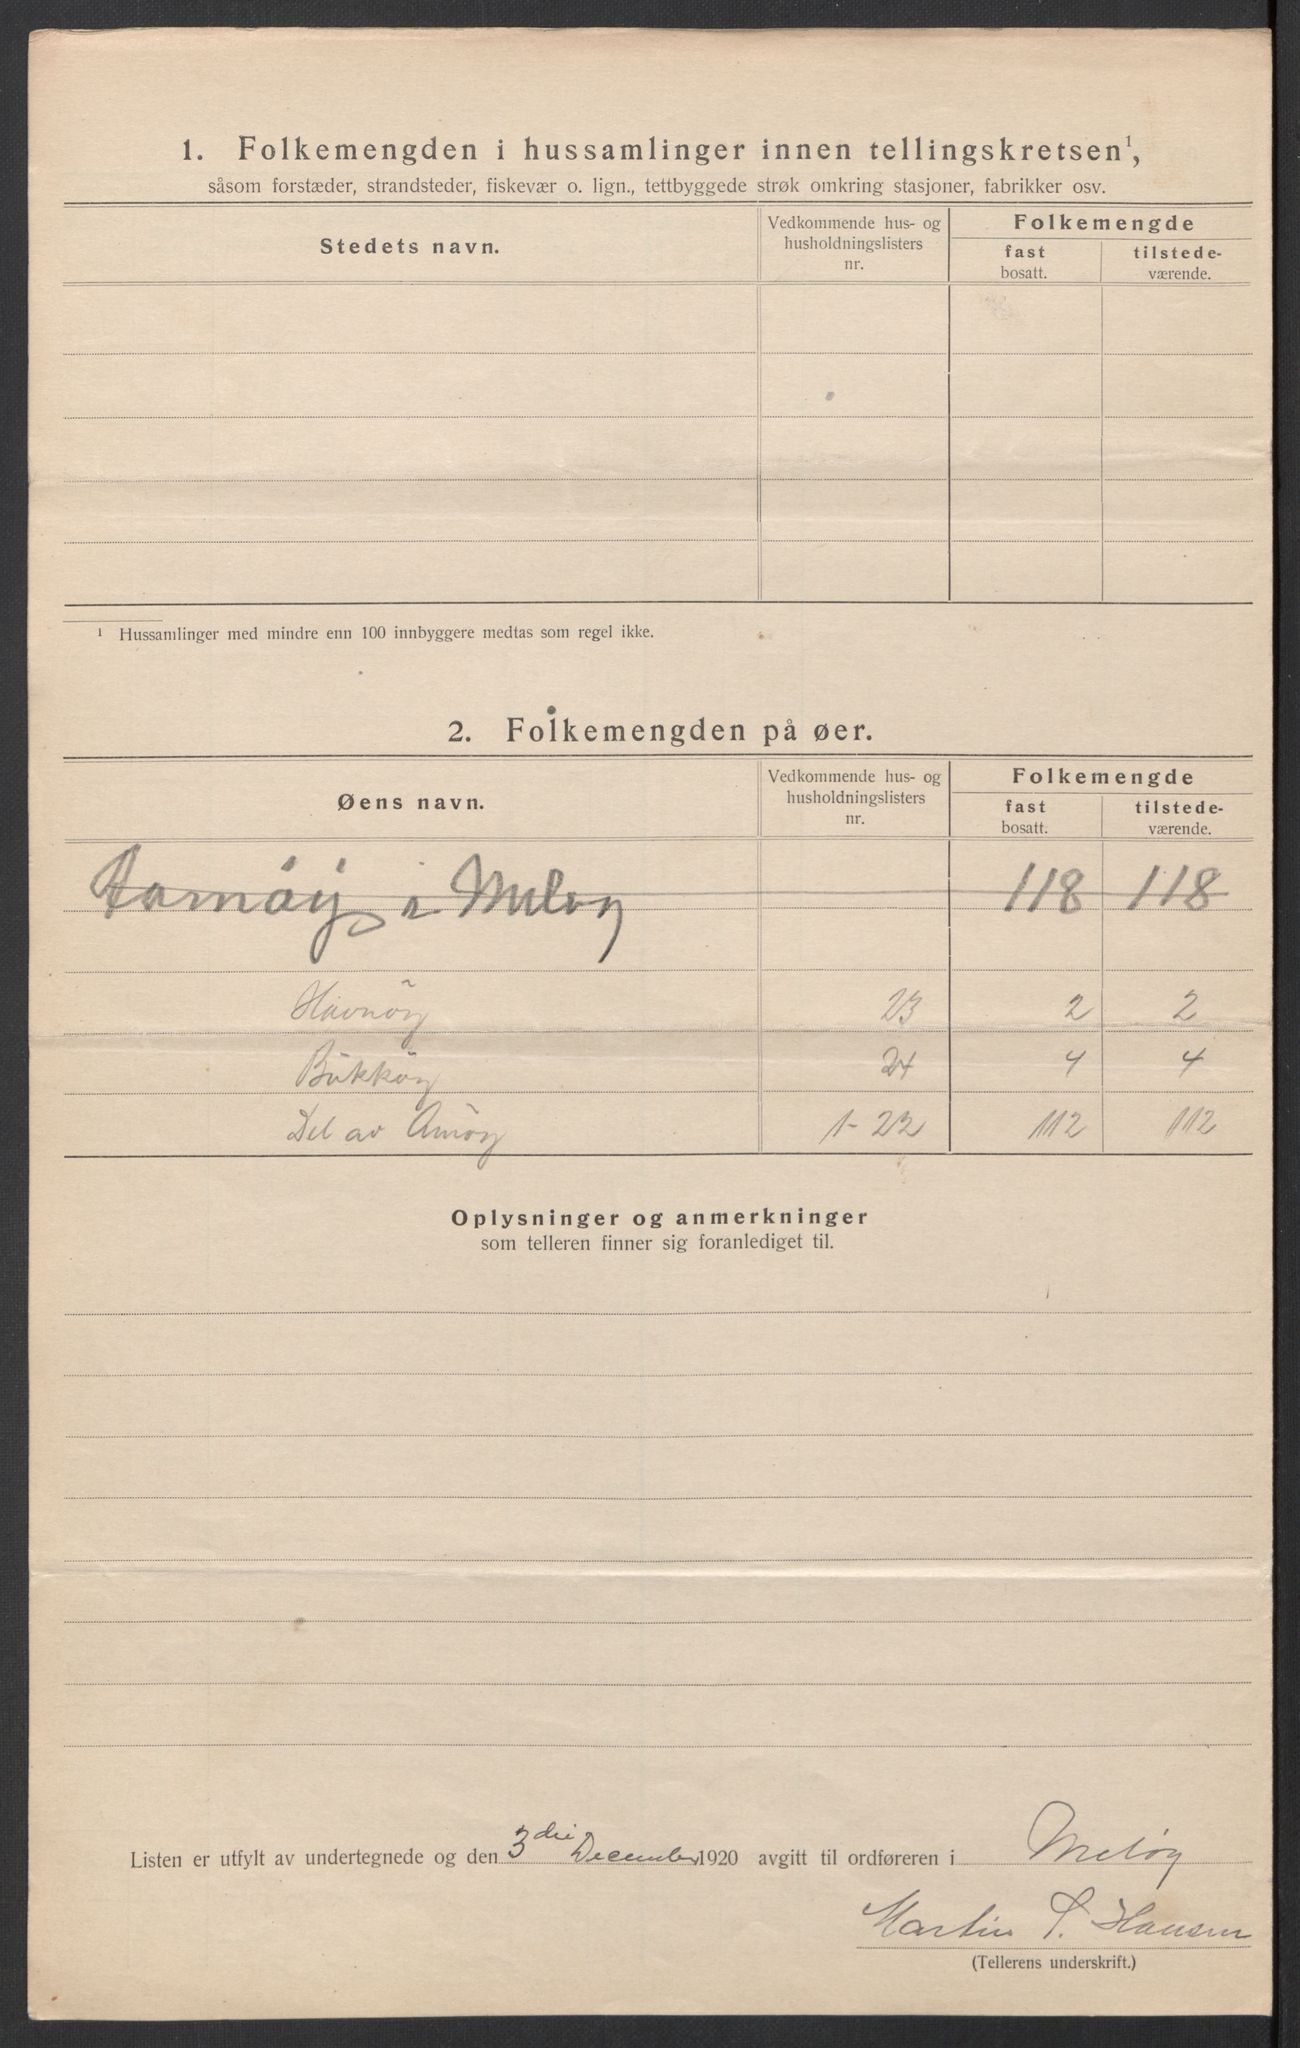 1. Folkemengden i hussamlinger innen tellingskretsen¹,
såsom forstæder, strandsteder, fiskevær o. lign., tettbyggede strøk omkring stasjoner, fabrikker osv.
Stedets navn.
Vedkommende hus- og
husholdningslisters
nr.
Folkemengde
fast
bosatt.
tilstede-
værende.
¹ Hussamlinger med mindre enn 100 innbyggere medtas som regel ikke.
2. Folkemengden på øer.
Øens navn.
Vedkommende hus- og
husholdningslisters
nr.
Folkemengde
fast
bosatt.
tilstede-
værende.
Aamöy i Meloy 118 118
Havnöy 23 2 2
Bukköy 24 4 4
Del av Åmöy 1-22 112 112
Oplysninger og anmerkninger
som telleren finner sig foranlediget til.
Listen er utfylt av undertegnede og den 3die December 1920 avgitt til ordføreren i Meløy
Martin S. Hansen
(Tellerens underskrift.)